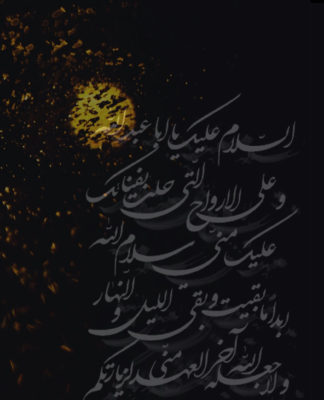 السلام علیک یا ابا عبدالله
و علی الارواح التی حلت بفنائک
علیک منی سلام الله
ابدا ما بقیت و بقی اللیل و النهار
ولا جعله الله آخر العهد منی لزیارتکم